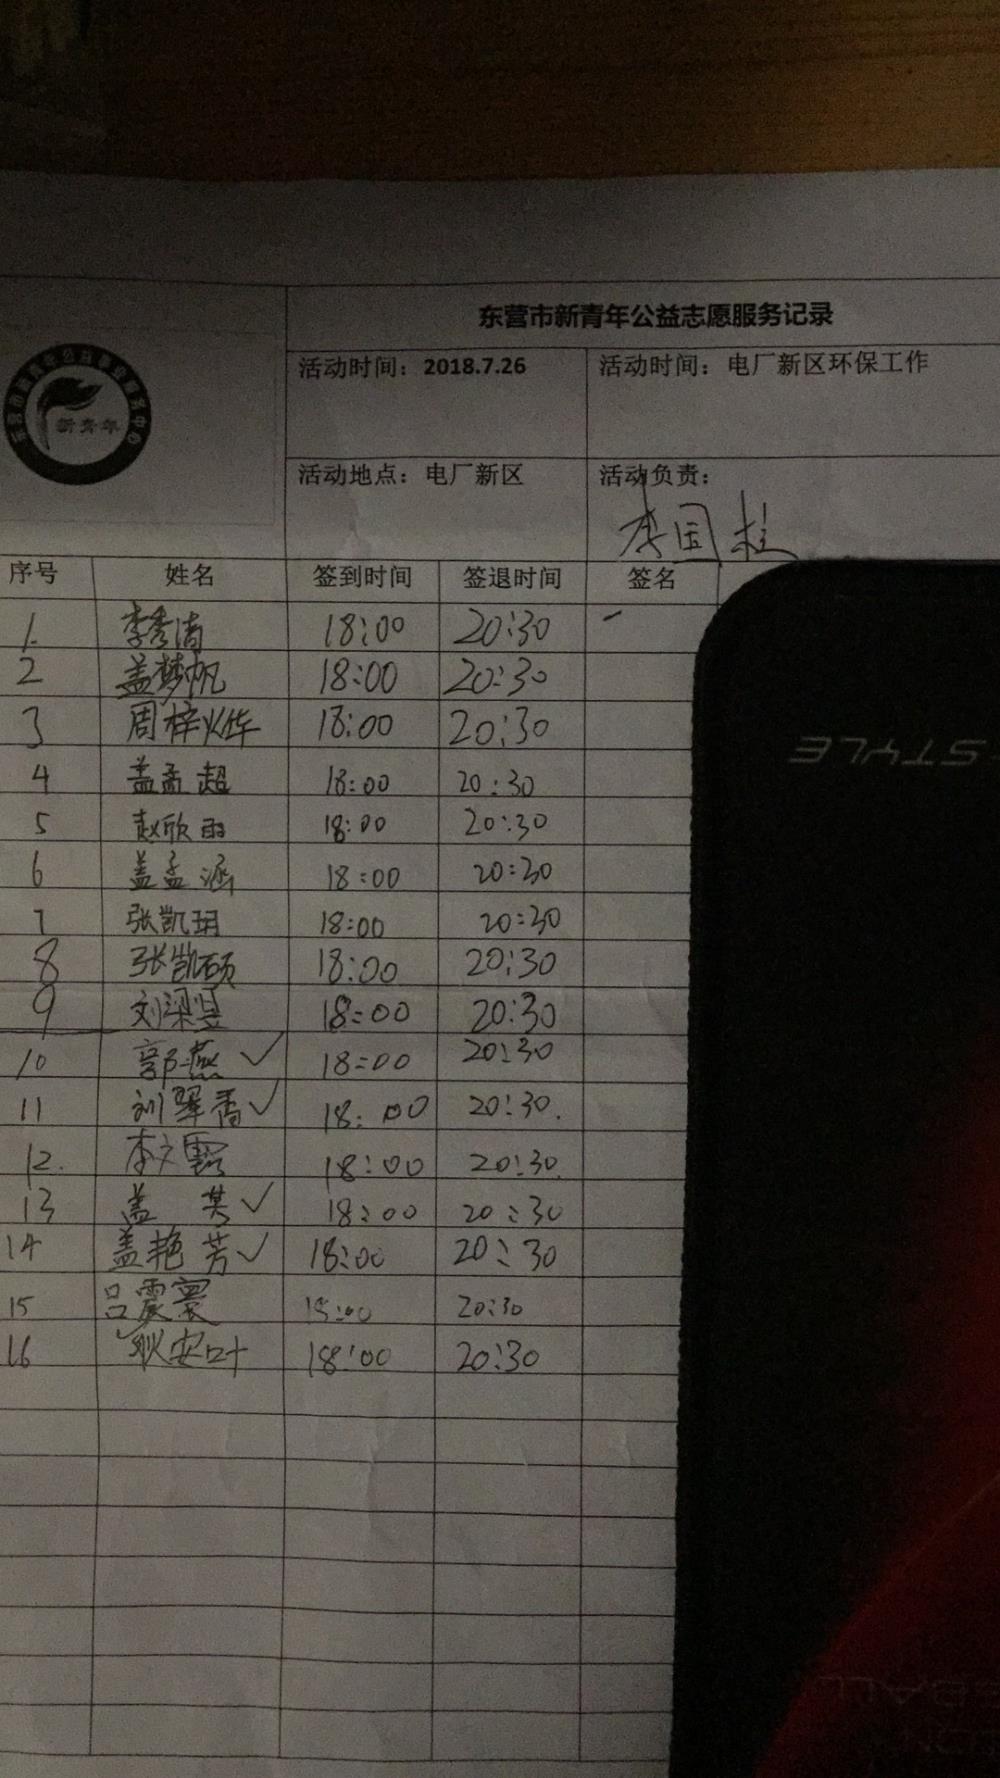 东营市新青年公益志愿服务记录
东营市新青年公益事业服务中心
新青年
活动时间：2018.7.26 活动时间：电厂新区环保工作
活动地点：电厂新区 活动负责：
李国桂
序号 姓名 签到时间 签退时间 签名
1. 李秀清 18:00 20:30
2 盖梦帆 18:00 20:30
3 周梓烨 18:00 20:30
4 盖孟超 18:00 20:30
5 赵欣雨 18:00 20:30
6 盖孟涵 18:00 20:30
7 张凯玥 18:00 20:30
8 张凯硕 18:00 20:30
9 刘梁昱 18:00 20:30
10 郭燕 ✓ 18:00 20:30
11 刘翠香 ✓ 18:00 20:30.
12. 李文露 18:00 20:30.
13 盖 ✓ 18:00 20:30
14 盖艳芳 ✓ 18:00 20:30
15 吕震寰 20:30
16 耿安叶 18:00 20:30
STYLE